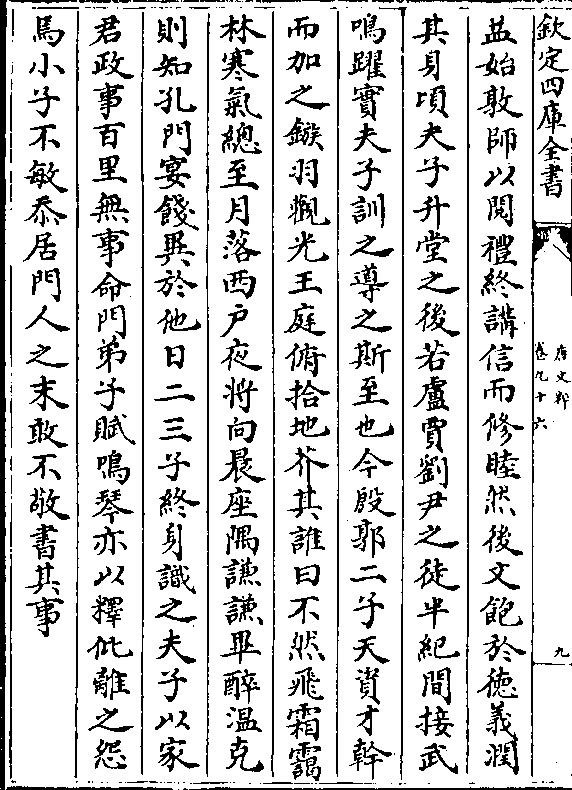 欽定四庫全書
唐文粹
卷九十六
九
益始敦師以閱禮終講信而修睦然後文飽於徳義潤
其身頃夫子升堂之後若盧賈劉尹之徒半紀間接武
鳴躍實夫子訓之導之斯至也今殷郭二子天資才幹
而加之鏃羽觀光王庭俯拾地芥其誰曰不然飛霜靄
林寒氣總至月落西戸夜將向晨座隅謙謙畢醉溫克
則知孔門宴餞異於他日二三子終身識之夫子以家
君政事百里無事命門弟子賦鳴琴亦以釋仳離之怨
焉小子不敏忝居門人之末敢不敬書其事